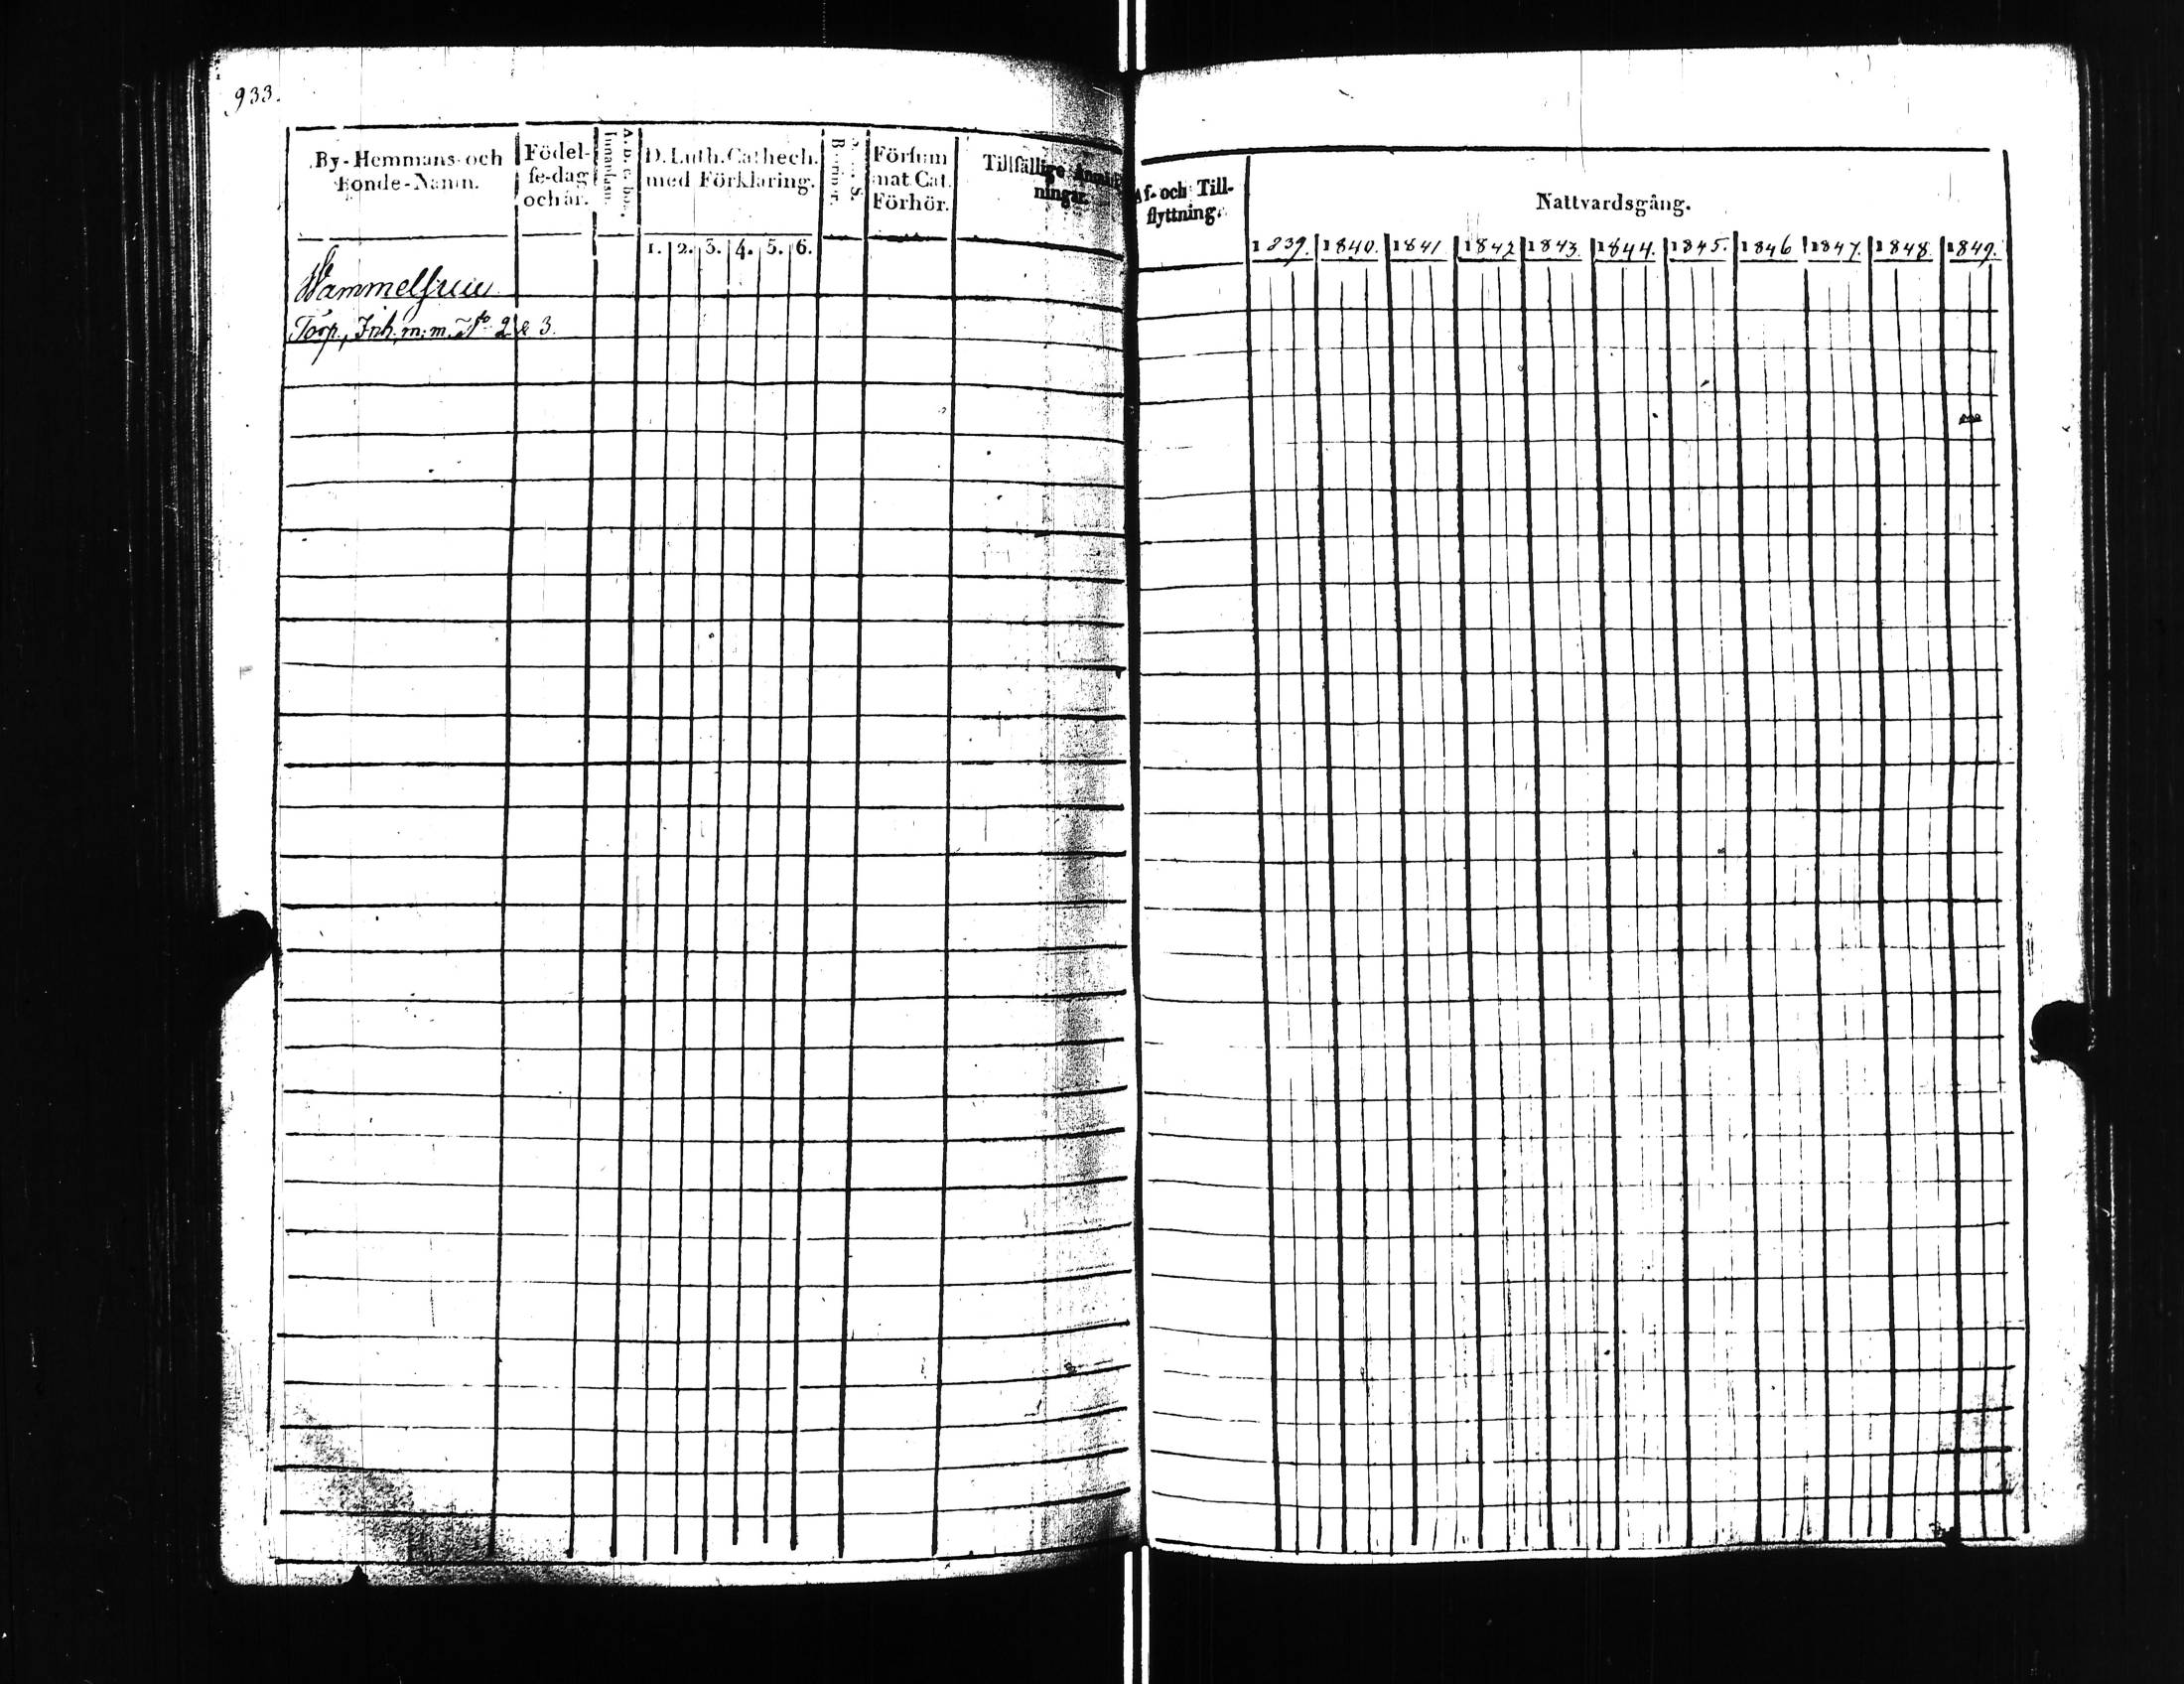 933.
By-Hemmans-och
Bonde-Namn.
Födel-
se-dag
och år.
A.B.C. bok,
Innanläsn.
D. Luth. Cathech.
med Förklaring.
1. 2. 3. 4. 5. 6.
Försum
mat Cat.
Förhör.
Tillfällige Anmärk
ningar.
Torp., Inh. m: m. 2 & 3.
Af- och Till-
flyttning.
Nattvardsgång.
1839. 1840. 1841 1842 1843. 1844. 1845. 1846 1847. 1848. 1849.